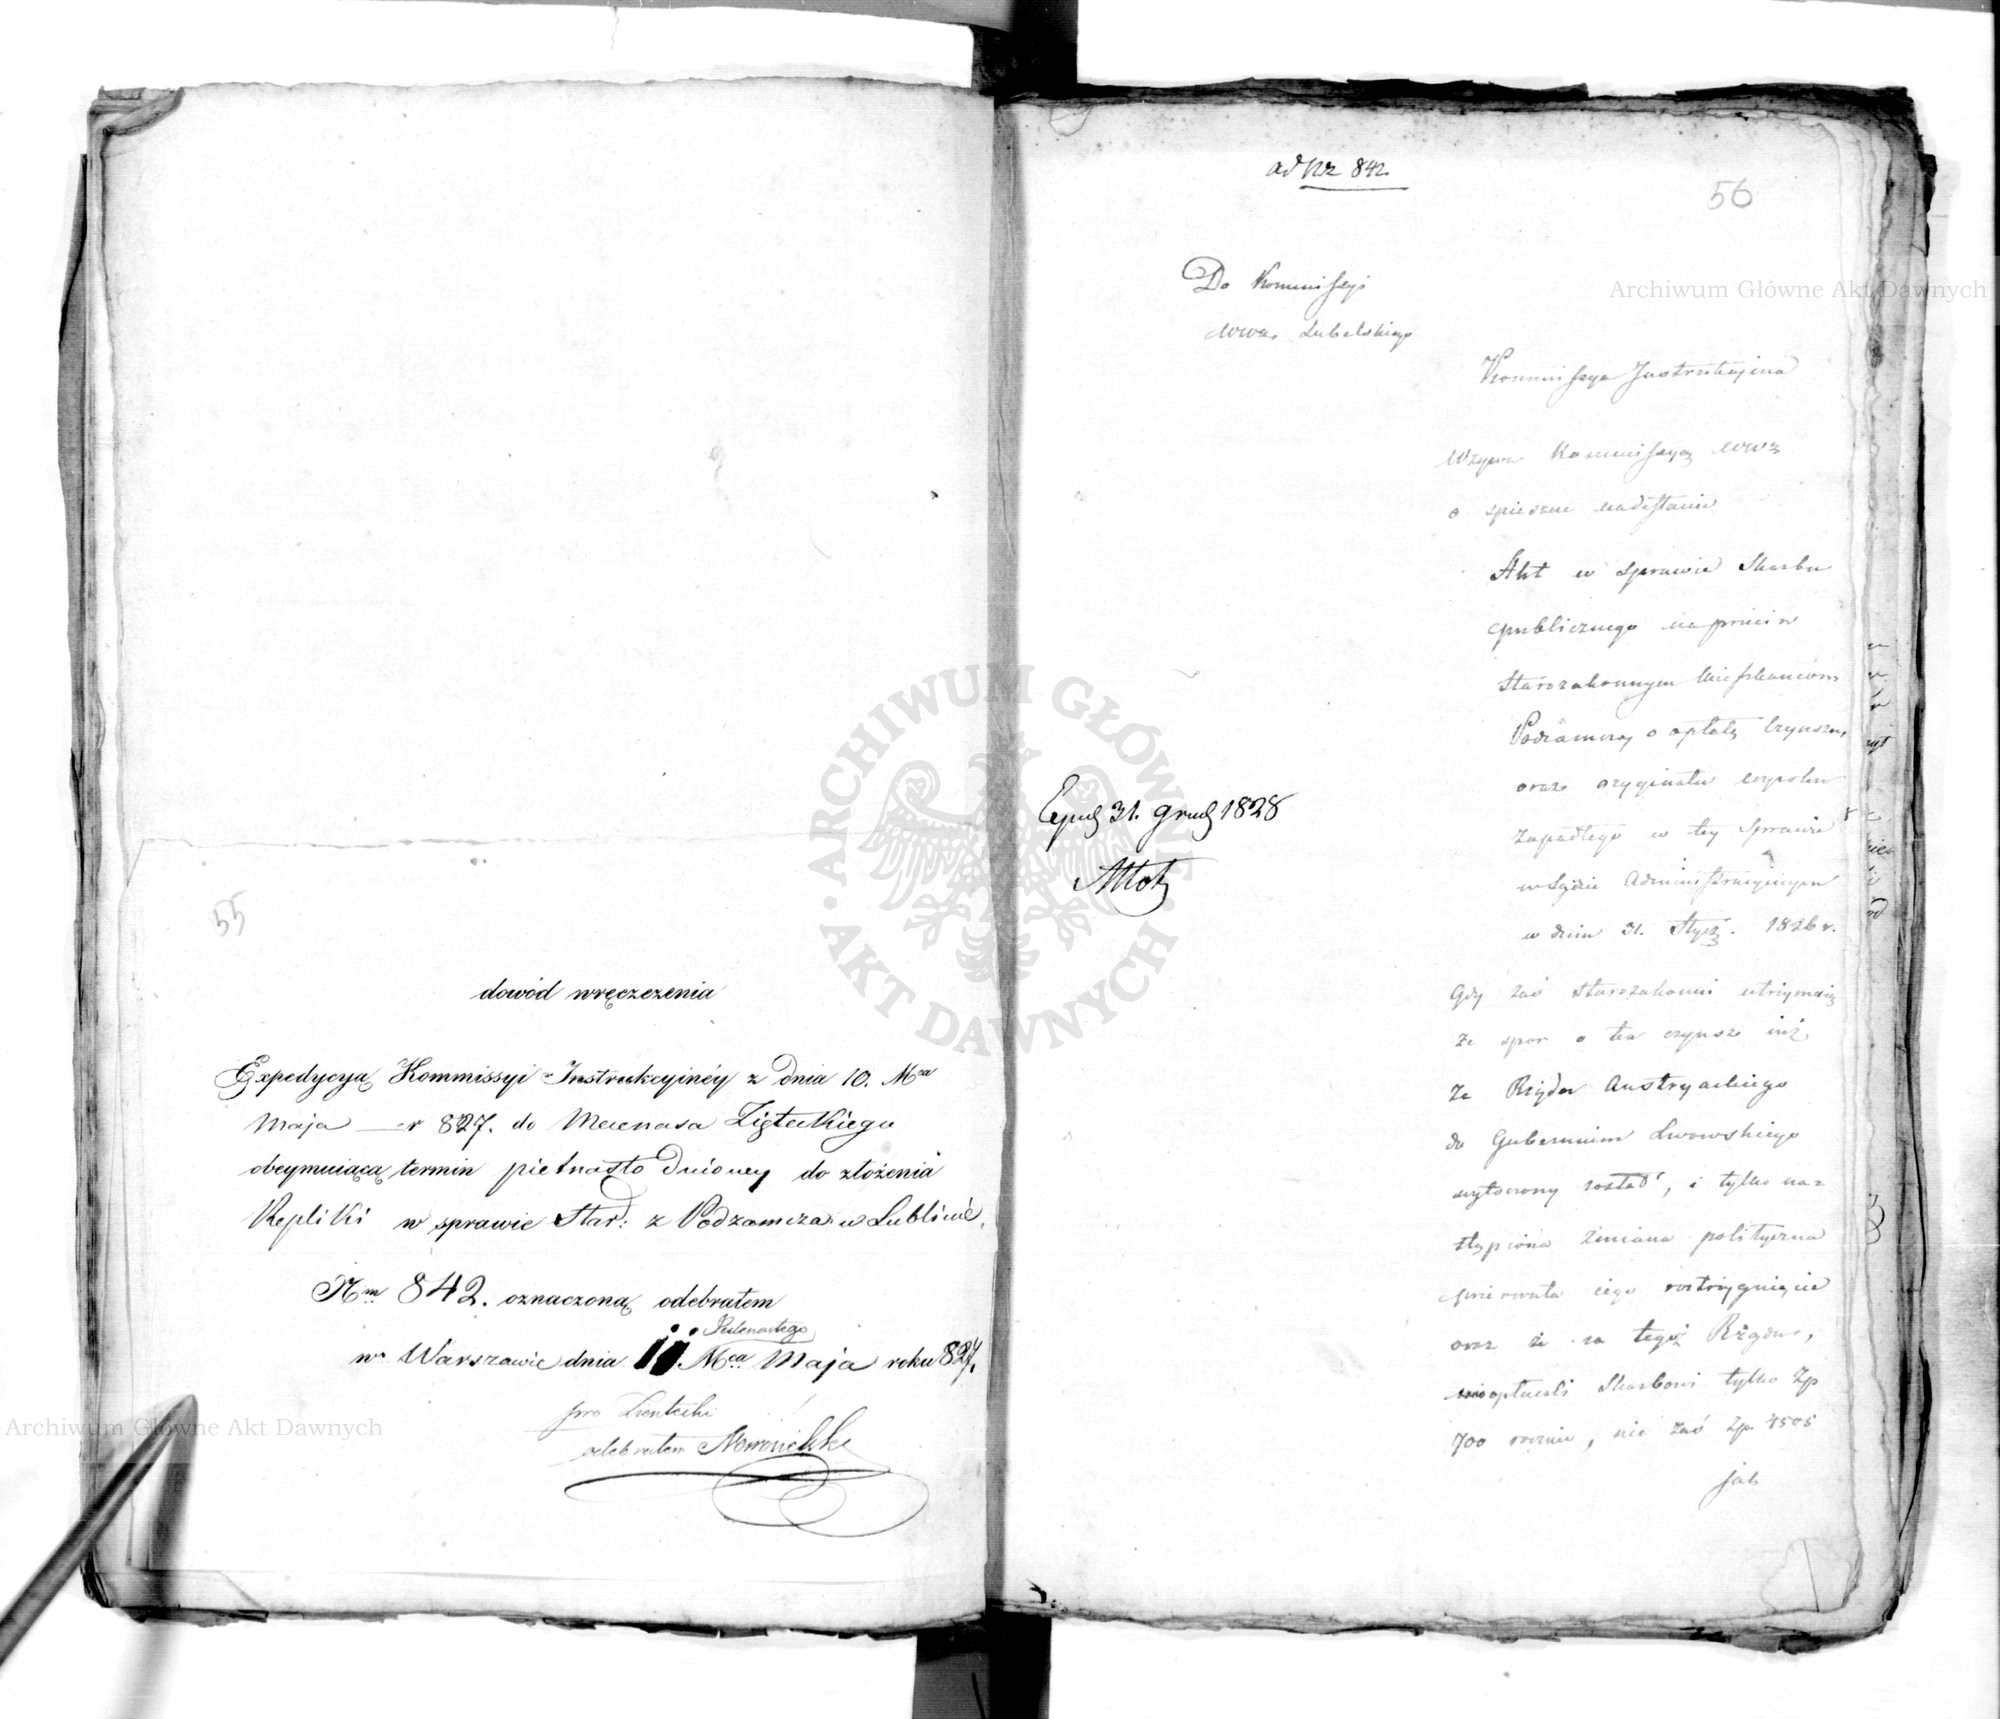 55
dowód wręczenia
Expedycyą Kommissyi Instrukcyinéy z dnia 10. Mca
Maja r 827. do Mecenasa Zięteckiego
obeymuiącą termin pietnasto dniowy do złożenia
Repliki w sprawie Star: z Podzamcza w Lublinie,
Nm 842. oznaczoną odebrałem
Jedenastego
w Warszawie dnia 11 Mca Maja roku 827.
pro Zientecki
odebrałem
ad Nr 842
56
Do Kommissyi
Wwa Lubelskiego
Kommissya Instrukcyina
Wzywa Kommissyą Wwą
o spieszne nadesłanie
Akt w sprawie Skarbu
publicznego naprzeciw
Starozakonnym Mieszkańcom
Podzamczay o opłatę Czynszu,
oraz oryginału wyroku
zapadłego w tey Sprawie
w Sądzie Administracyinym
w dniu 31. Stycz. 1826 r.
Gdy zaś starozakonni utrzymuią
że spor o ten czynsz iuż
za Rządu Austryackiego
do Gubernium Lwowskiego
wytoczony został, i tylko na=
stąpiona zmiana polityczna
przerwała iego rozstrzygnięcie
oraz że za tegoż Rządu,
opłacali Skarbowi tylko Zp
700 rocznie, nie zaś Zp. 4505
jak
31. Grud 1828
Archiwum Główne Akt Dawnych
Archiwum Główne Akt Dawnych
ARCHIWUM GŁÓWNE AKT DAWNYCH